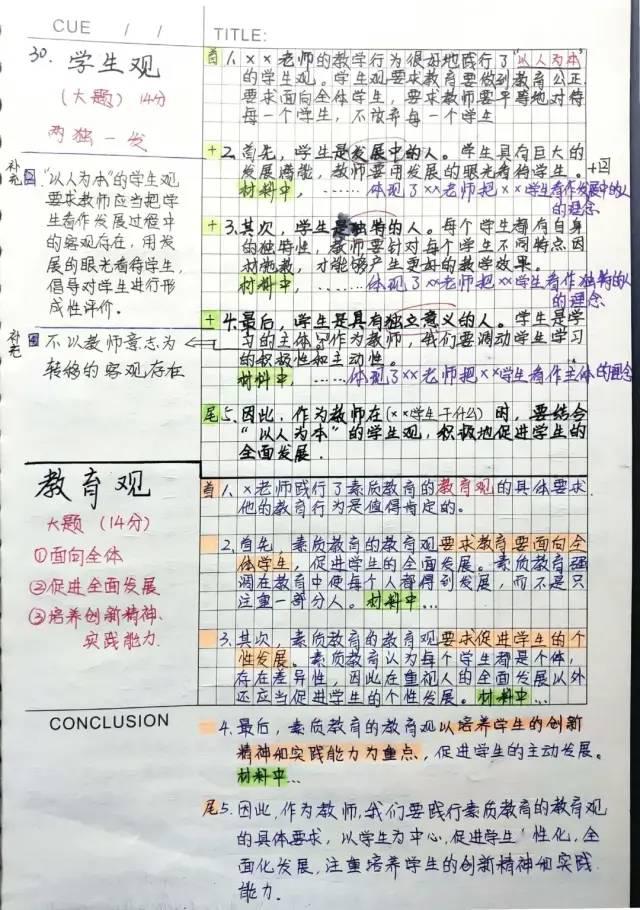 CUE / /
TITLE:
30. 学生观
(大题) 14分
两独一发
补充
"以人为本"的学生观
要求教师应当把学
生看作发展过程中
的客观存在,用发
展的眼光看待学生,
倡导对学生进行形
成性评价。
补充
不以教师意志为
转移的客观存在
首 1. ××老师的教学行为很好地践行了"以人为本"
的学生观。学生观要求教育要做到教育公正
要求面向全体学生,要求教师要平等地对待
每一个学生,不放弃每一个学生
+2. 首先,学生是发展中的人。学生具有巨大的
发展潜能,教师要用发展的眼光看待学生。
材料中,……体现了××老师把××学生看作发展中的人
的理念
+3. 其次,学生是独特的人。每个学生都有自身
的独特性,教师要针对每个学生不同特点因
材施教,才能够产生更好的教学效果。
材料中,……体现了××老师把××学生看作独特的人
的理念
+4. 最后,学生是具有独立意义的人。学生是学
习的主体,作为教师,我们要调动学生学习
的积极性和主动性。
材料中,……体现了××老师把××学生看作主体的理念
尾 5. 因此,作为教师在(××学生干什么)时,要结合
"以人为本"的学生观,积极地促进学生的
全面发展.
教育观
大题 (14分)
①面向全体
②促进全面发展
③培养创新精神、
实践能力.
首 1. ×老师践行了素质教育的教育观的具体要求.
他的教育行为是值得肯定的。
2. 首先,素质教育的教育观要求教育要面向全
体学生,促进学生的全面发展。素质教育强
调在教育中使每个人都得到发展,而不是只
注重一部分人。材料中…
3. 其次,素质教育的教育观要求促进学生的个
性发展。素质教育认为每个学生都是个体,
存在差异性,因此在重视人的全面发展以外
还应当促进学生的个性发展。材料中…
CONCLUSION
4. 最后,素质教育的教育观以培养学生的创新
精神和实践能力为重点,促进学生的主动发展。
材料中…
尾 5. 因此,作为教师,我们要践行素质教育的教育观
的具体要求,以学生为中心,促进学生 性化,全
面化发展,注重培养学生的创新精神和实践
能力.